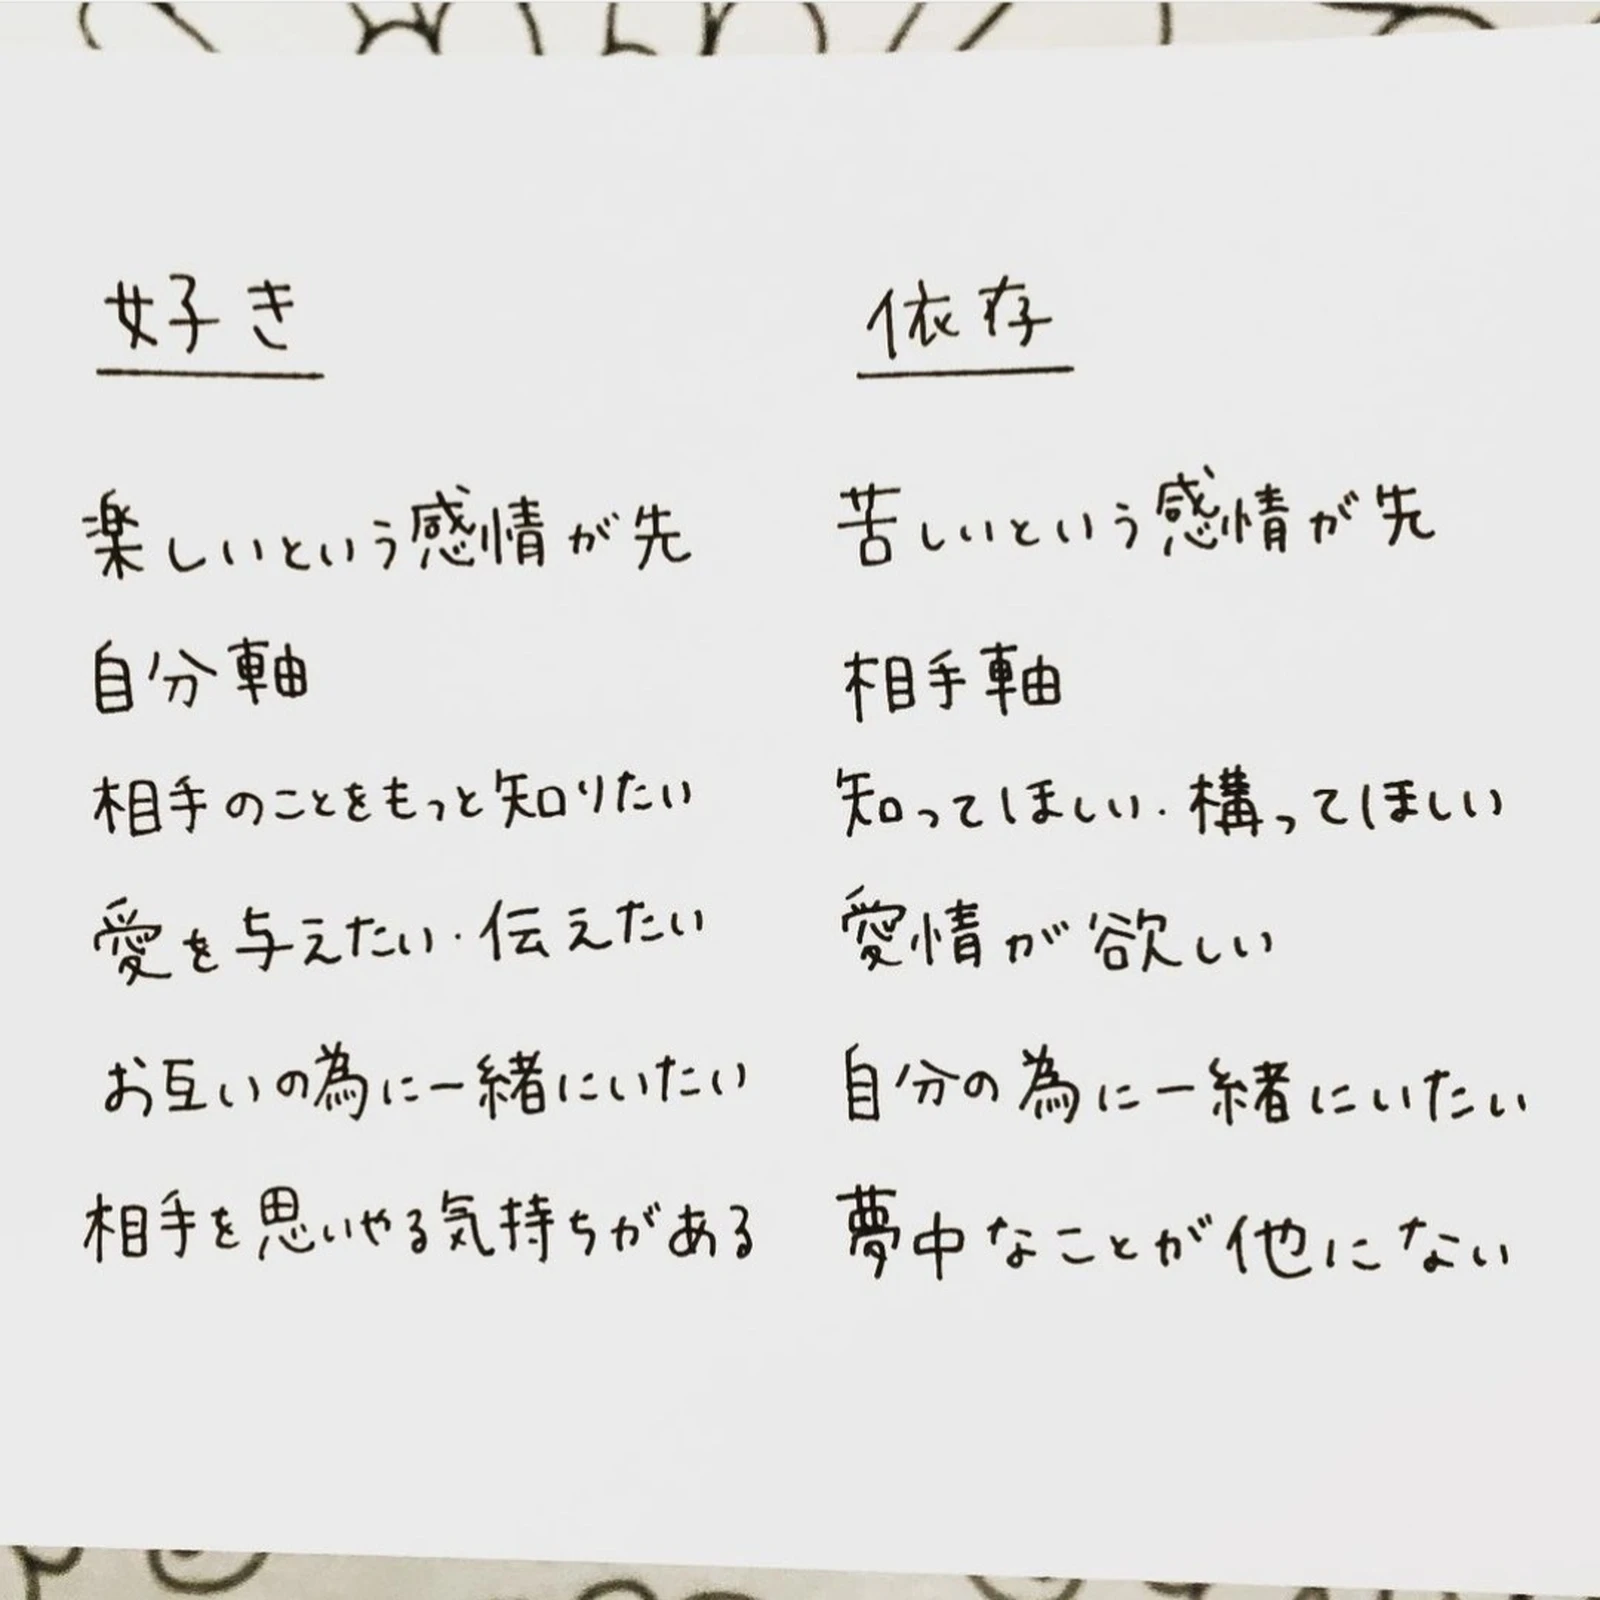 好き
楽しいという感情が先
自分軸
相手のことをもっと知りたい
愛を与えたい・伝えたい
お互いの為に一緒にいたい
相手を思いやる気持ちがある
依存
苦しいという感情が先
相手軸
知ってほしい・構ってほしい
愛情が欲しい
自分の為に一緒にいたい
夢中なことが他にない